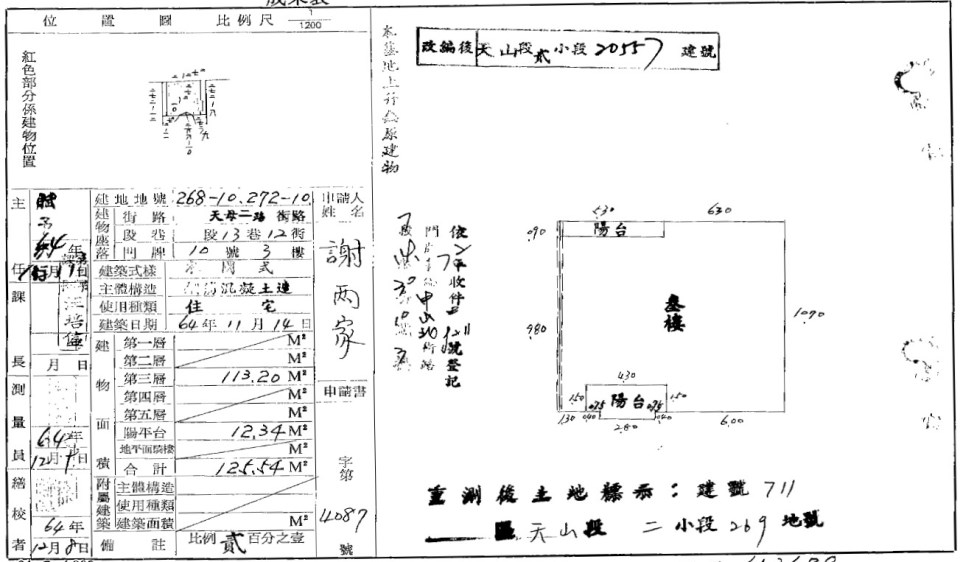 位置圖 比例尺 1/1200
紅色部分係建物位置
改編後 天山段貳小段20557 建號
本基地上
原建物
建地地號 268-10.272-10
建物座落
街路 天母二路 街路
段巷 段13巷12街
門牌 10號3樓
建築式樣 式
主體構造 混凝土造
使用種類 住宅
建築日期 64年11月14日
建物面積
第一層 M²
第二層 M²
第三層 113.20 M²
第四層 M²
第五層 M²
陽平台 12.34 M²
地平面騎樓 M²
合計 125.54 M²
附屬建築
主體構造
使用種類
建築面積 M²
備註 比例貳百分之壹
申請人姓名
謝兩家
申請書
字第
4087
號
主任
課長
月 日
測量員
64年
12月 日
繪校者
64年
12月8日
收件
號登記
630
陽台
090
980
1090
430
150
陽台
150
130
040
280
040
600
重測後土地標示：建號711
區天山段 二小段269地號